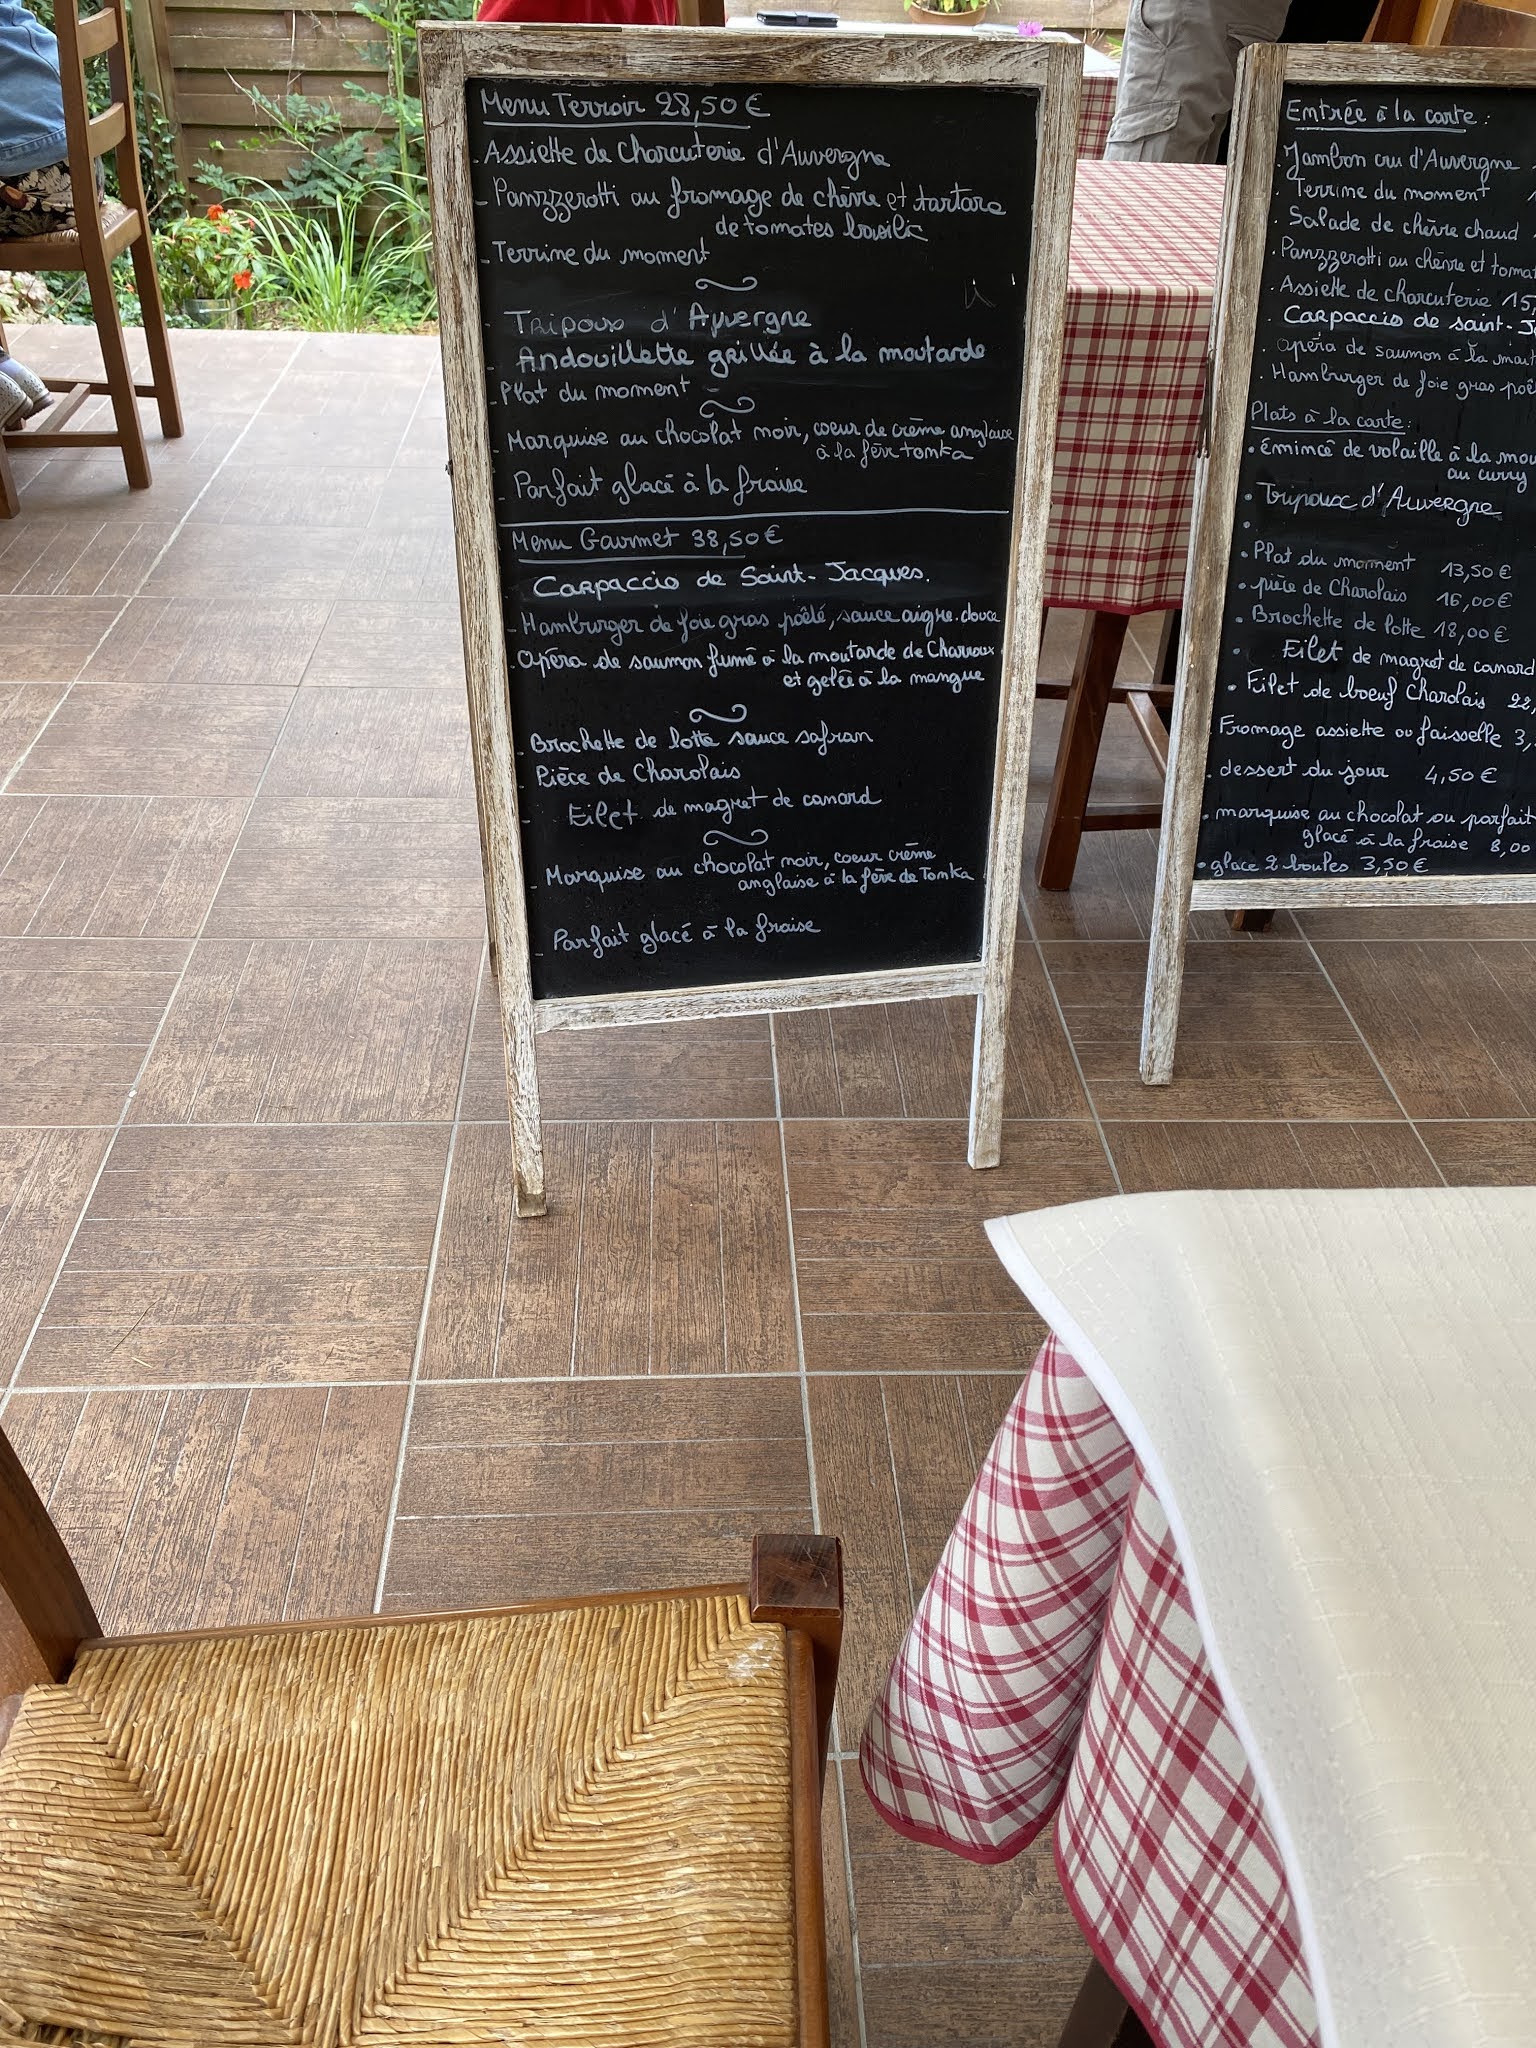 Menu Terroir 28,50 €
- Assiette de charcuterie d'Auvergne
- Panzzerotti au fromage de chèvre et tartare
de tomates basilic
- Terrine du moment
- Tripoux d'Auvergne
- Andouillette grillée à la moutarde
- Plat du moment
- Marquise au chocolat noir, coeur de crème anglaise
à la fève tonka
- Parfait glacé à la fraise
Menu Gourmet 38,50 €
Carpaccio de Saint-Jacques.
- Hamburger de foie gras poêlé, sauce aigre-douce
- Opéra de saumon fumé à la moutarde de Charroux
et gelée à la mangue
- Brochette de lotte sauce safran
- Pièce de Charolais
- Filet de magret de canard
- Marquise au chocolat noir, coeur crème
anglaise à la fève de Tonka
- Parfait glacé à la fraise
Entrée à la carte :
. Jambon cru d'Auvergne
. Terrine du moment
. Salade de chèvre chaud
. Panzzerotti au chèvre et
. Assiette de charcuterie 15,
. Carpaccio de saint-J
. opéra de saumon à la
. Hamburger de foie gras
Plats à la carte :
• émincé de volaille à la
au curry
• Tripoux d'Auvergne
• Plat du moment 13,50 €
• pièce de Charolais 16,00 €
• Brochette de lotte 18,00 €
• Filet de magret de canard
• Filet de boeuf Charolais 22,
Fromage assiette ou faisselle 3,
. dessert du jour 4,50 €
• marquise au chocolat ou parfait
glacé à la fraise 8,00
• glace 2 boules 3,50 €